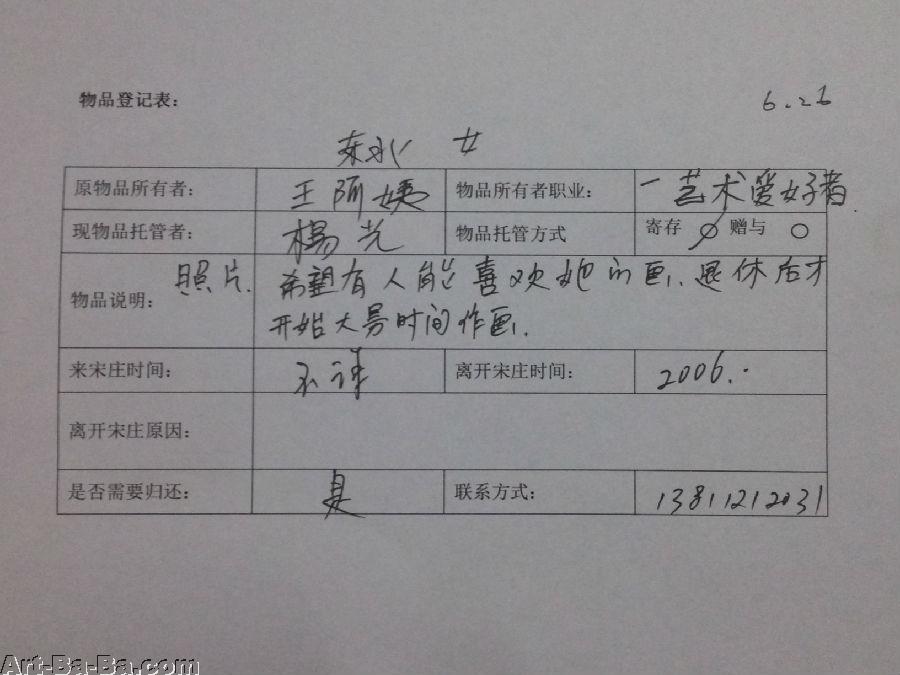 物品登记表：
6.26
女
原物品所有者： 王阿姨 物品所有者职业： 一艺术爱好者.
现物品托管者： 楊光 物品托管方式 寄存 赠与
物品说明： 照片. 希望有人能喜欢她的画、退休后才
开始大易时间作画.
来宋庄时间： 不详 离开宋庄时间： 2006..
离开宋庄原因：
是否需要归还： 是 联系方式： 13811212031
Art-Ba-Ba.com